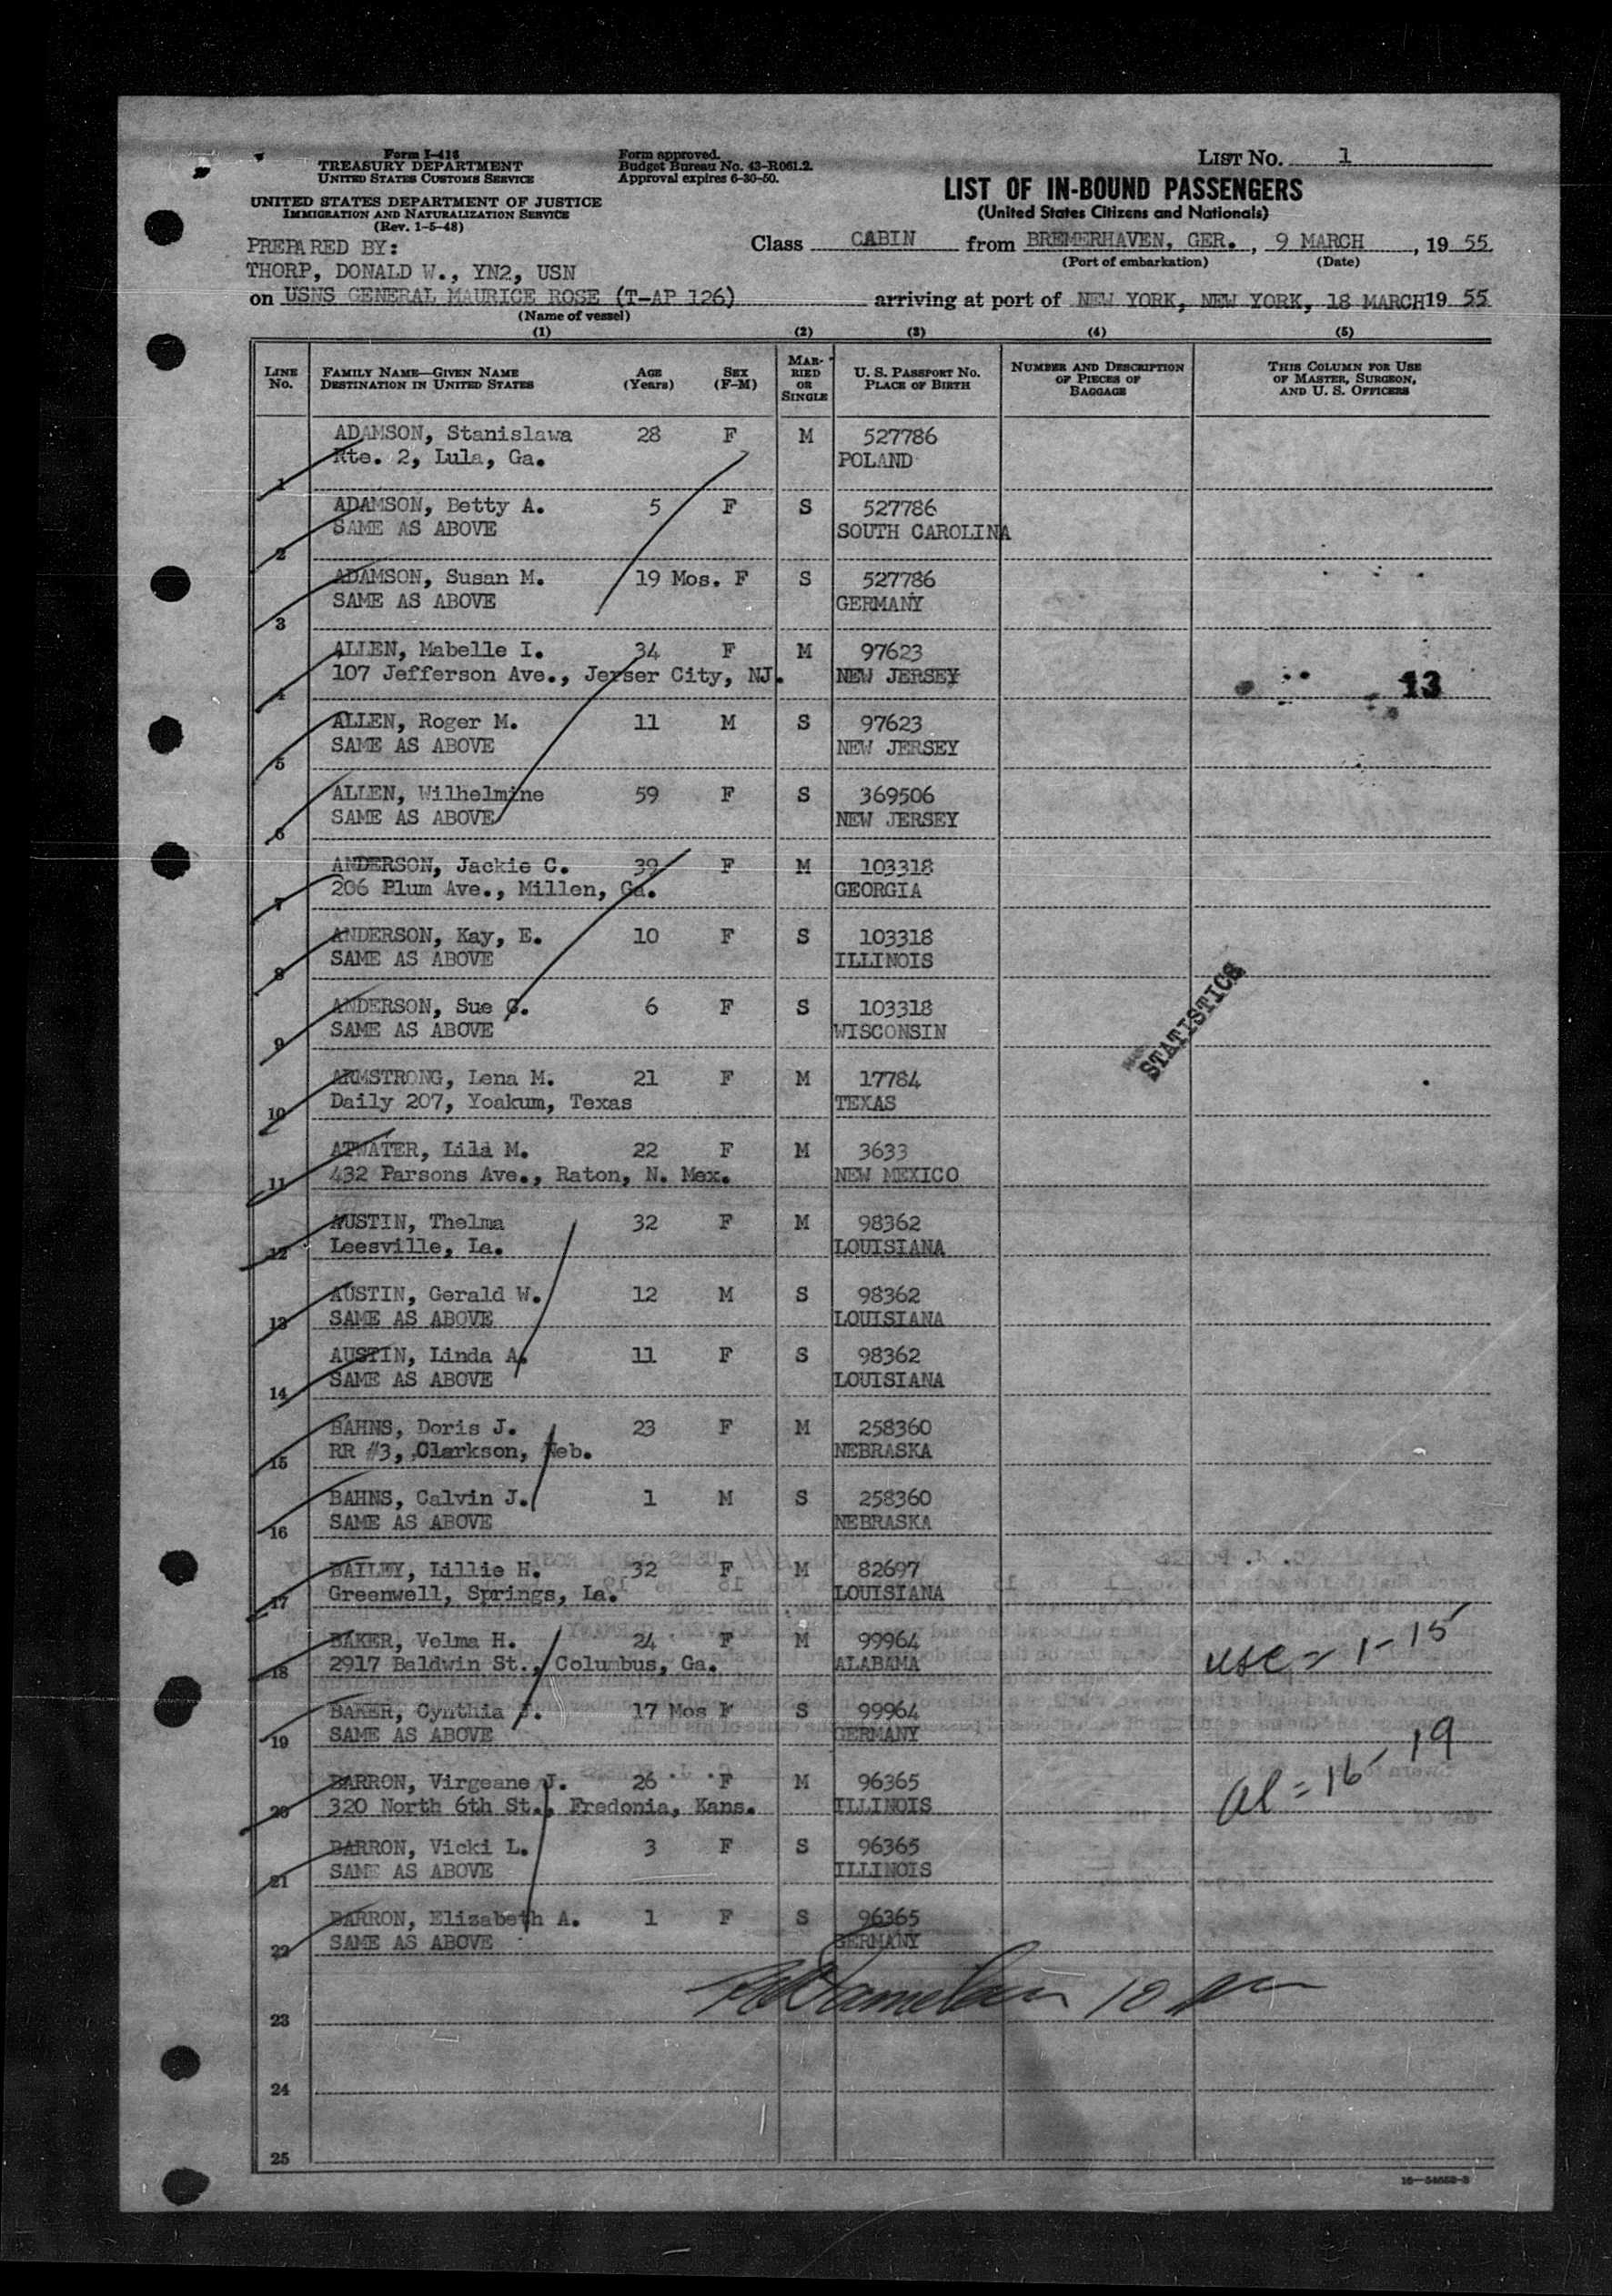 Form I-416
TREASURY DEPARTMENT
UNITED STATES CUSTOMS SERVICE
UNITED STATES DEPARTMENT OF JUSTICE
IMMIGRATION AND NATURALIZATION SERVICE
(Rev. 1-5-48)
Form approved.
Budget Bureau No. 43-R061.2.
Approval expires 6-30-50.
LIST NO. 1
LIST OF IN-BOUND PASSENGERS
(United States Citizens and Nationals)
PREPARED BY:
THORP, DONALD W., YN2, USN
Class CABIN from BREMERHAVEN, GER., 9 MARCH, 19 55
(Port of embarkation) (Date)
on USNS GENERAL MAURICE ROSE (T-AP 126) arriving at port of NEW YORK, NEW YORK, 18 MARCH 19 55
(Name of vessel)
(1) (2) (3) (4) (5)
LINE No.
FAMILY NAME—GIVEN NAME
DESTINATION IN UNITED STATES
AGE (Years)
SEX (F-M)
MARRIED OR SINGLE
U. S. PASSPORT NO.
PLACE OF BIRTH
NUMBER AND DESCRIPTION OF PIECES OF BAGGAGE
THIS COLUMN FOR USE OF MASTER, SURGEON, AND U. S. OFFICERS
ADAMSON, Stanislawa 28 F M 527786
1 Rte. 2, Lula, Ga. POLAND
ADAMSON, Betty A. 5 F S 527786
2 SAME AS ABOVE SOUTH CAROLINA
ADAMSON, Susan M. 19 Mos. F S 527786
3 SAME AS ABOVE GERMANY
ALLEN, Mabelle I. 34 F M 97623
4 107 Jefferson Ave., Jerser City, NJ. NEW JERSEY 13
ALLEN, Roger M. 11 M S 97623
5 SAME AS ABOVE NEW JERSEY
ALLEN, Wilhelmine 59 F S 369506
6 SAME AS ABOVE NEW JERSEY
ANDERSON, Jackie C. 39 F M 103318
7 206 Plum Ave., Millen, Ga. GEORGIA
ANDERSON, Kay, E. 10 F S 103318
8 SAME AS ABOVE ILLINOIS
ANDERSON, Sue G. 6 F S 103318
9 SAME AS ABOVE WISCONSIN
STATISTICS
ARMSTRONG, Lena M. 21 F M 17784
10 Daily 207, Yoakum, Texas TEXAS
ATWATER, Lila M. 22 F M 3633
11 432 Parsons Ave., Raton, N. Mex. NEW MEXICO
AUSTIN, Thelma 32 F M 98362
12 Leesville, La. LOUISIANA
AUSTIN, Gerald W. 12 M S 98362
13 SAME AS ABOVE LOUISIANA
AUSTIN, Linda A. 11 F S 98362
14 SAME AS ABOVE LOUISIANA
BAHNS, Doris J. 23 F M 258360
15 RR #3, Clarkson, Neb. NEBRASKA
BAHNS, Calvin J. 1 M S 258360
16 SAME AS ABOVE NEBRASKA
BAILEY, Lillie H. 32 F M 82697
17 Greenwell, Springs, La. LOUISIANA
BAKER, Velma H. 24 F M 99964
18 2917 Baldwin St., Columbus, Ga. ALABAMA usc = 1-15
BAKER, Cynthia J. 17 Mos F S 99964
19 SAME AS ABOVE GERMANY
BARRON, Virgeane J. 26 F M 96365
20 320 North 6th St., Fredonia, Kans. ILLINOIS al = 16-19
BARRON, Vicki L. 3 F S 96365
21 SAME AS ABOVE ILLINOIS
BARRON, Elizabeth A. 1 F S 96365
22 SAME AS ABOVE GERMANY
10
23
24
25